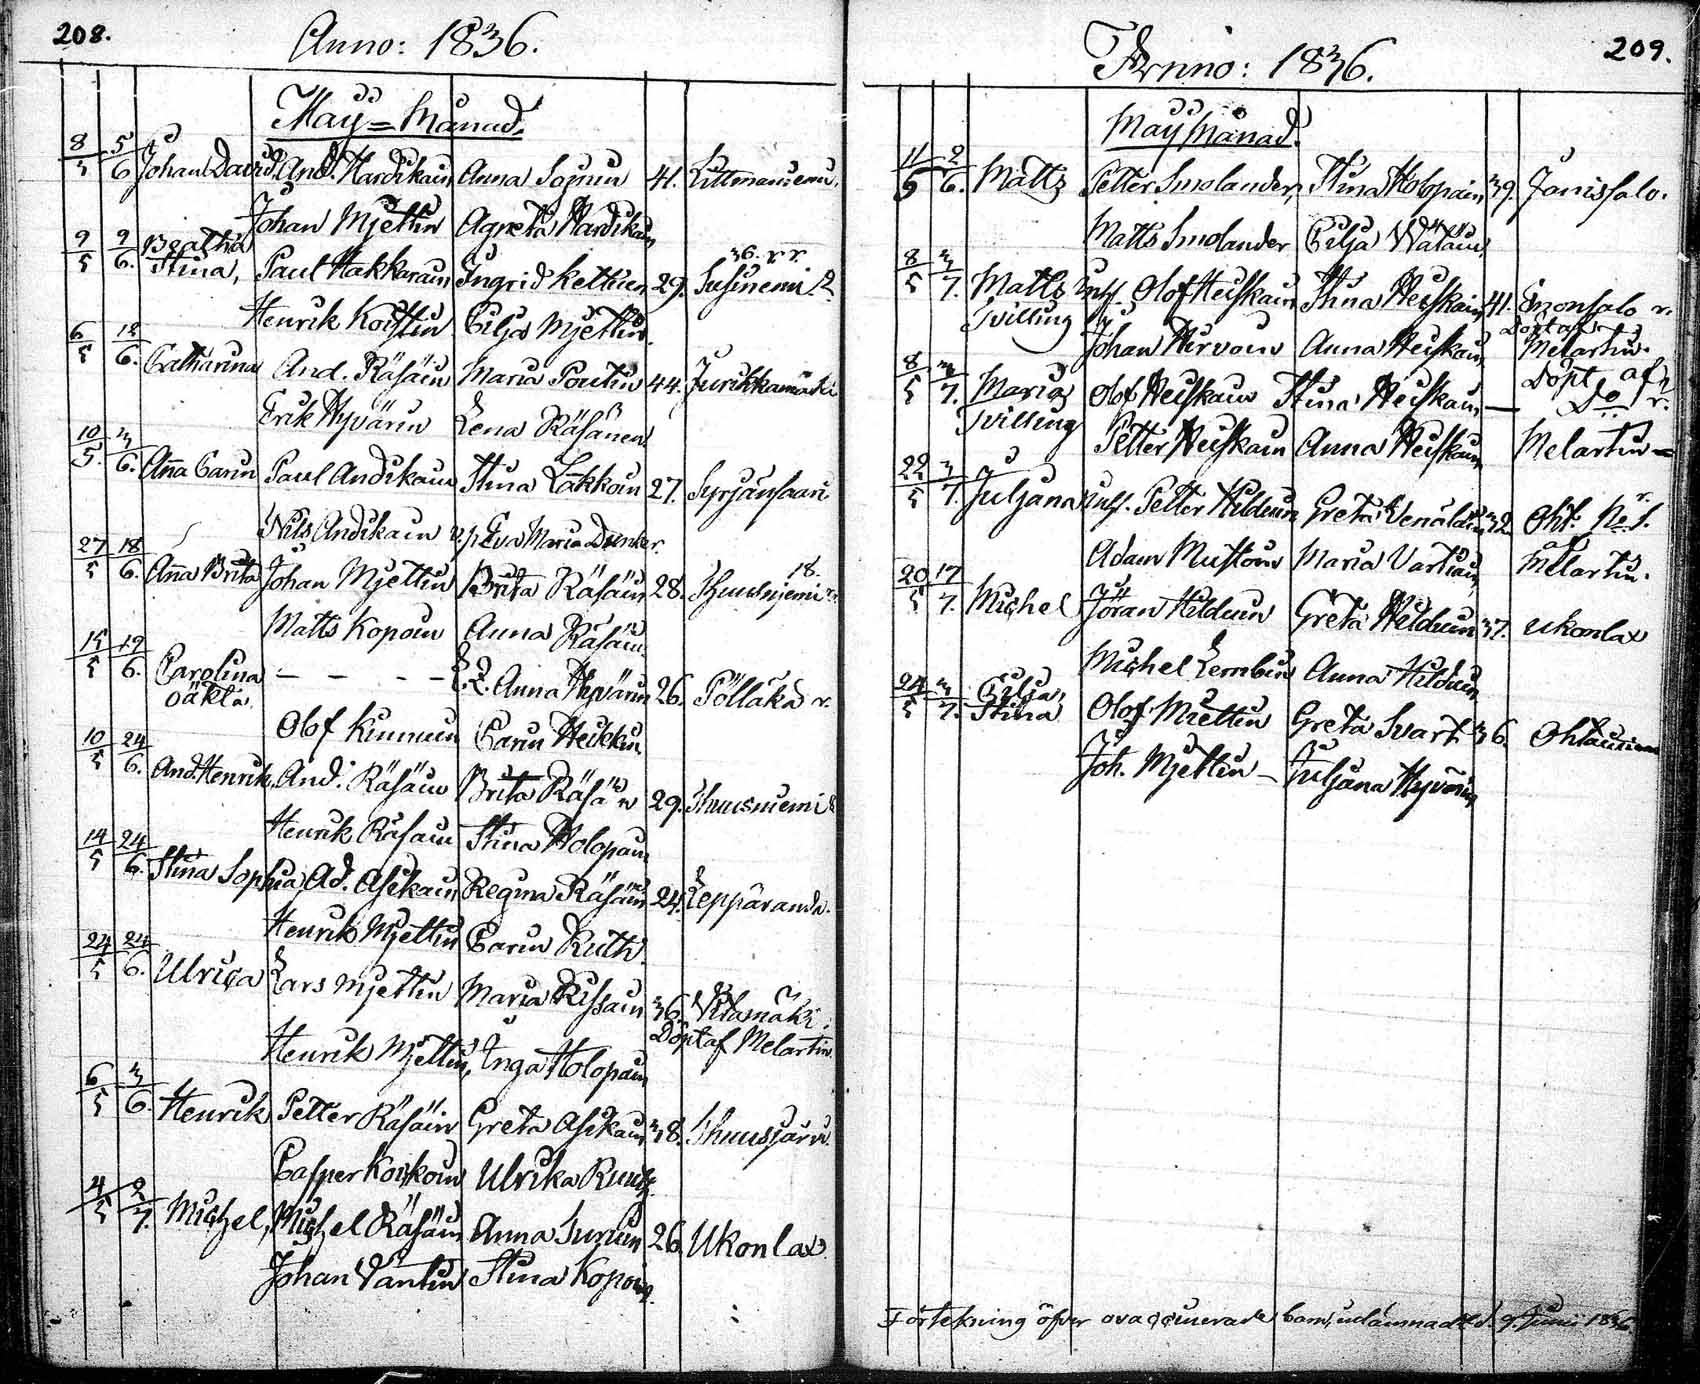 208.
Anno: 1836.
Maÿ = Månad.
8/5 5/6 Johan David, And. Hardikain Anna Soinin 41. Littmaniemi.
Johan Mjettin Agneta Hardikain
9/5 9/6. Beatha
Stina, Paul Hakkarain Ingrid Kettuen 29. Susiniemi 2.
36. rr.
Henrik Koistin Cilja Mjettin.
6/5 12/6. Catharina And. Räsäin Maria Poutin 44. Jurikkamäki
Erik Hyvärin Lena Räsänen
10/5. 3/6. Aña Carin Paul Andikain Stina Lakkoin 27. Syrjänsaari
Nils Andikain Eva Maria Dunker.
27/5 18/6. Aña Brita Johan Mjettin Brita Räsäin 28. Thuusnjemi
18.
Matts Kopoin Anna Räsäin
15/5 19/6. Carolina — — — — Anna Hyvärin 26. Pöllakä r.
oäkta.
Olof Kinnuin Carin Heikkin.
10/5 24/6. And. Henrik, And. Räsäin Brita Räsäin 29. Thuusniemi 8
Henrik Räsäin Stina Holopain
14/5 24/6. Stina Sophia Ad. Asikain Regina Räsäin 24. Leppäranda.
Henrik Mjettin Carin Ruth.
24/5 24/6. Ulrica Lars Mjettin Maria Rissain 36. Kiamäki.
Döpt af Melartin.
Henrik Mjettin, Inga Holopain
6/5 3/6. Henrik Petter Räsäin Greta Asikain 38. Thuusjärvi.
Casper Korhoin Ulrika Ruuth
4/5 2/7. Michel, Michel Räsäin Anna Suruin 26. Ukonlax.
Johan Vantin Stina Kopoin.
209.
Anno: 1836.
Maÿ Månad.
11/5 2/6. Matts Petter Smolander, Stina Holopain 39. Jänissalo.
Matts Smolander Cilja Wätäin
8/5 3/7. Matts Inh. Olof Heiskain Stina Heiskain 41. Enonsalo r.
Tvilling
Johan Hirvoin Anna Heiskain
Döpt af
Melartin.
8/5 3/7. Maria Olof Heiskain Stina Heiskain — Döpt af
Tvilling D:o r.
Petter Heiskain Anna Heiskain Melartin
22/5 3/7. Juljana Inh. Petter Hilduin Greta Venäläin 32 Oht. No 1.
Adam Mustoin Maria Vartiain af Melartin.
20/5 17/7. Michel Jöran Hilduin Greta Hilduin 37. Ukonlax
Michel Lembin Anna Hilduin
24/5 3/7. Cilja
Stina Olof Miettin Greta Svart 36. Ohtaniemi
Joh. Mjettin — Juljana Hyvärin
Förtekning öfver ovaccinerade barn, utlämnadt d. 9. Junii 1836